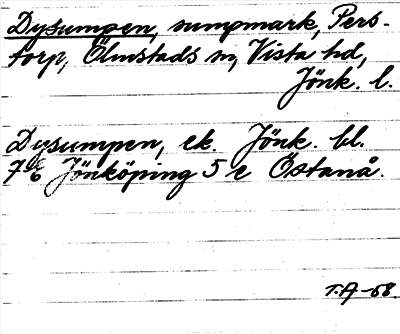 Dysumpen, sumpmark, Pers-
torp, Ölmstads sn, Vista hd,
Jönk. l.
Dysumpen, ek. Jönk. bl.
7 Jönköping 5 e Östanå.
T.A -58